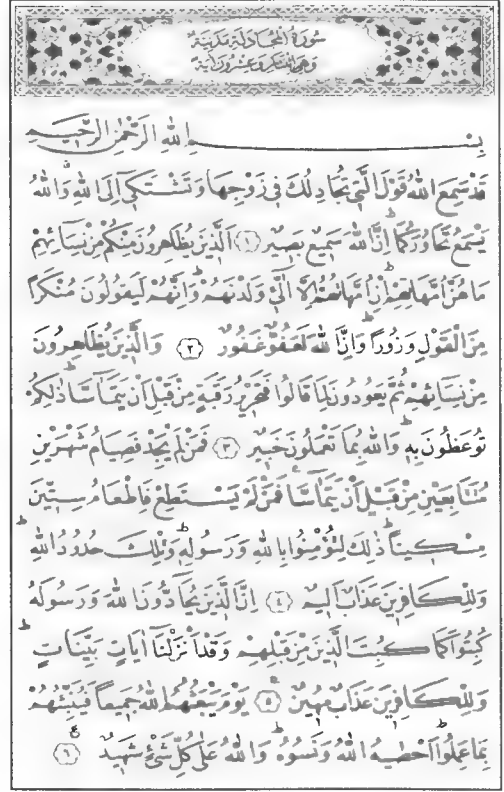 سُورَةُ الْمُجَادَلَةِ مَدَنِيَّةٌ
وَهِيَ اثْنَتَانِ وَعِشْرُونَ اٰيَةً
بِسْمِ اللّٰهِ الرَّحْمٰنِ الرَّحِيمِ
قَدْ سَمِعَ اللّٰهُ قَوْلَ الَّتِي تُجَادِلُكَ فِي زَوْجِهَا وَتَشْتَكِي اِلَى اللّٰهِ وَاللّٰهُ
يَسْمَعُ تَحَاوُرَكُمَا اِنَّ اللّٰهَ سَمِيعٌ بَصِيرٌ ﴿١﴾ اَلَّذِينَ يُظَاهِرُونَ مِنْكُمْ مِنْ نِسَائِهِمْ
مَا هُنَّ اُمَّهَاتِهِمْ اِنْ اُمَّهَاتُهُمْ اِلَّا الّٰٓـِٔي وَلَدْنَهُمْ وَاِنَّهُمْ لَيَقُولُونَ مُنْكَرًا
مِنَ الْقَوْلِ وَزُورًا وَاِنَّ اللّٰهَ لَعَفُوٌّ غَفُورٌ ﴿٢﴾ وَالَّذِينَ يُظَاهِرُونَ
مِنْ نِسَائِهِمْ ثُمَّ يَعُودُونَ لِمَا قَالُوا فَتَحْرِيرُ رَقَبَةٍ مِنْ قَبْلِ اَنْ يَتَمَاسَّا ذٰلِكُمْ
تُوعَظُونَ بِهِ وَاللّٰهُ بِمَا تَعْمَلُونَ خَبِيرٌ ﴿٣﴾ فَمَنْ لَمْ يَجِدْ فَصِيَامُ شَهْرَيْنِ
مُتَتَابِعَيْنِ مِنْ قَبْلِ اَنْ يَتَمَاسَّا فَمَنْ لَمْ يَسْتَطِعْ فَاِطْعَامُ سِتِّينَ
مِسْكِينًا ذٰلِكَ لِتُؤْمِنُوا بِاللّٰهِ وَرَسُولِهِ وَتِلْكَ حُدُودُ اللّٰهِ
وَلِلْكَافِرِينَ عَذَابٌ اَلِيمٌ ﴿٤﴾ اِنَّ الَّذِينَ يُحَادُّونَ اللّٰهَ وَرَسُولَهُ
كُبِتُوا كَمَا كُبِتَ الَّذِينَ مِنْ قَبْلِهِمْ وَقَدْ اَنْزَلْنَا اٰيَاتٍ بَيِّنَاتٍ
وَلِلْكَافِرِينَ عَذَابٌ مُهِينٌ ﴿٥﴾ يَوْمَ يَبْعَثُهُمُ اللّٰهُ جَمِيعًا فَيُنَبِّئُهُمْ
بِمَا عَمِلُوا اَحْصٰيهُ اللّٰهُ وَنَسُوهُ وَاللّٰهُ عَلٰى كُلِّ شَيْءٍ شَهِيدٌ ﴿٦﴾